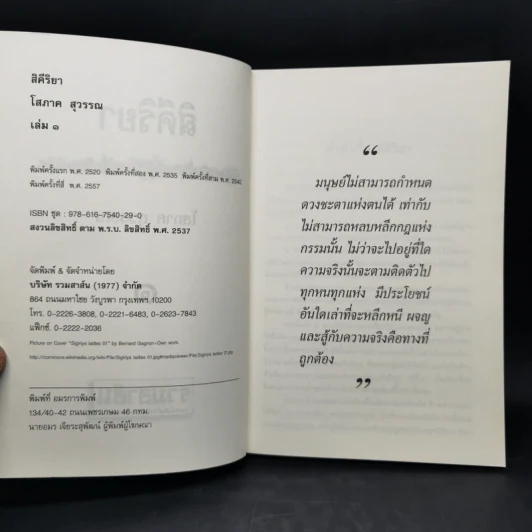 สิคีริยา
โสภาค สุวรรณ
เล่ม ๑
พิมพ์ครั้งแรก พ.ศ. 2520 พิมพ์ครั้งที่สอง พ.ศ. 2535 พิมพ์ครั้งที่สาม พ.ศ. 2542
พิมพ์ครั้งที่สี่ พ.ศ. 2557
ISBN ชุด : 978-616-7540-29-0
สงวนลิขสิทธิ์ ตาม พ.ร.บ. ลิขสิทธิ์ พ.ศ. 2537
จัดพิมพ์ & จัดจำหน่ายโดย
บริษัท รวมสาส์น (1977) จำกัด
864 ถนนมหาไชย วังบูรพา กรุงเทพฯ 10200
โทร. 0-2226-3808, 0-2221-6483, 0-2623-7843
แฟ็กซ์. 0-2222-2036
Picture on Cover "Sigiriya ladies 01" by Bernard Gagnon-Own work.
พิมพ์ที่ อมรการพิมพ์
134/40-42 ถนนเพชรเกษม 46 กทม.
นายอมร เจียระสุพัฒน์ ผู้พิมพ์ผู้โฆษณา
“
มนุษย์ไม่สามารถกำหนด
ดวงชะตาแห่งตนได้ เท่ากับ
ไม่สามารถหลบหลีกกฎแห่ง
กรรมนั้น ไม่ว่าจะไปอยู่ที่ใด
ความจริงนั้นจะตามติดตัวไป
ทุกหนทุกแห่ง มีประโยชน์
อันใดเล่าที่จะหลีกหนี ผจญ
และสู้กับความจริงคือทางที่
ถูกต้อง
”